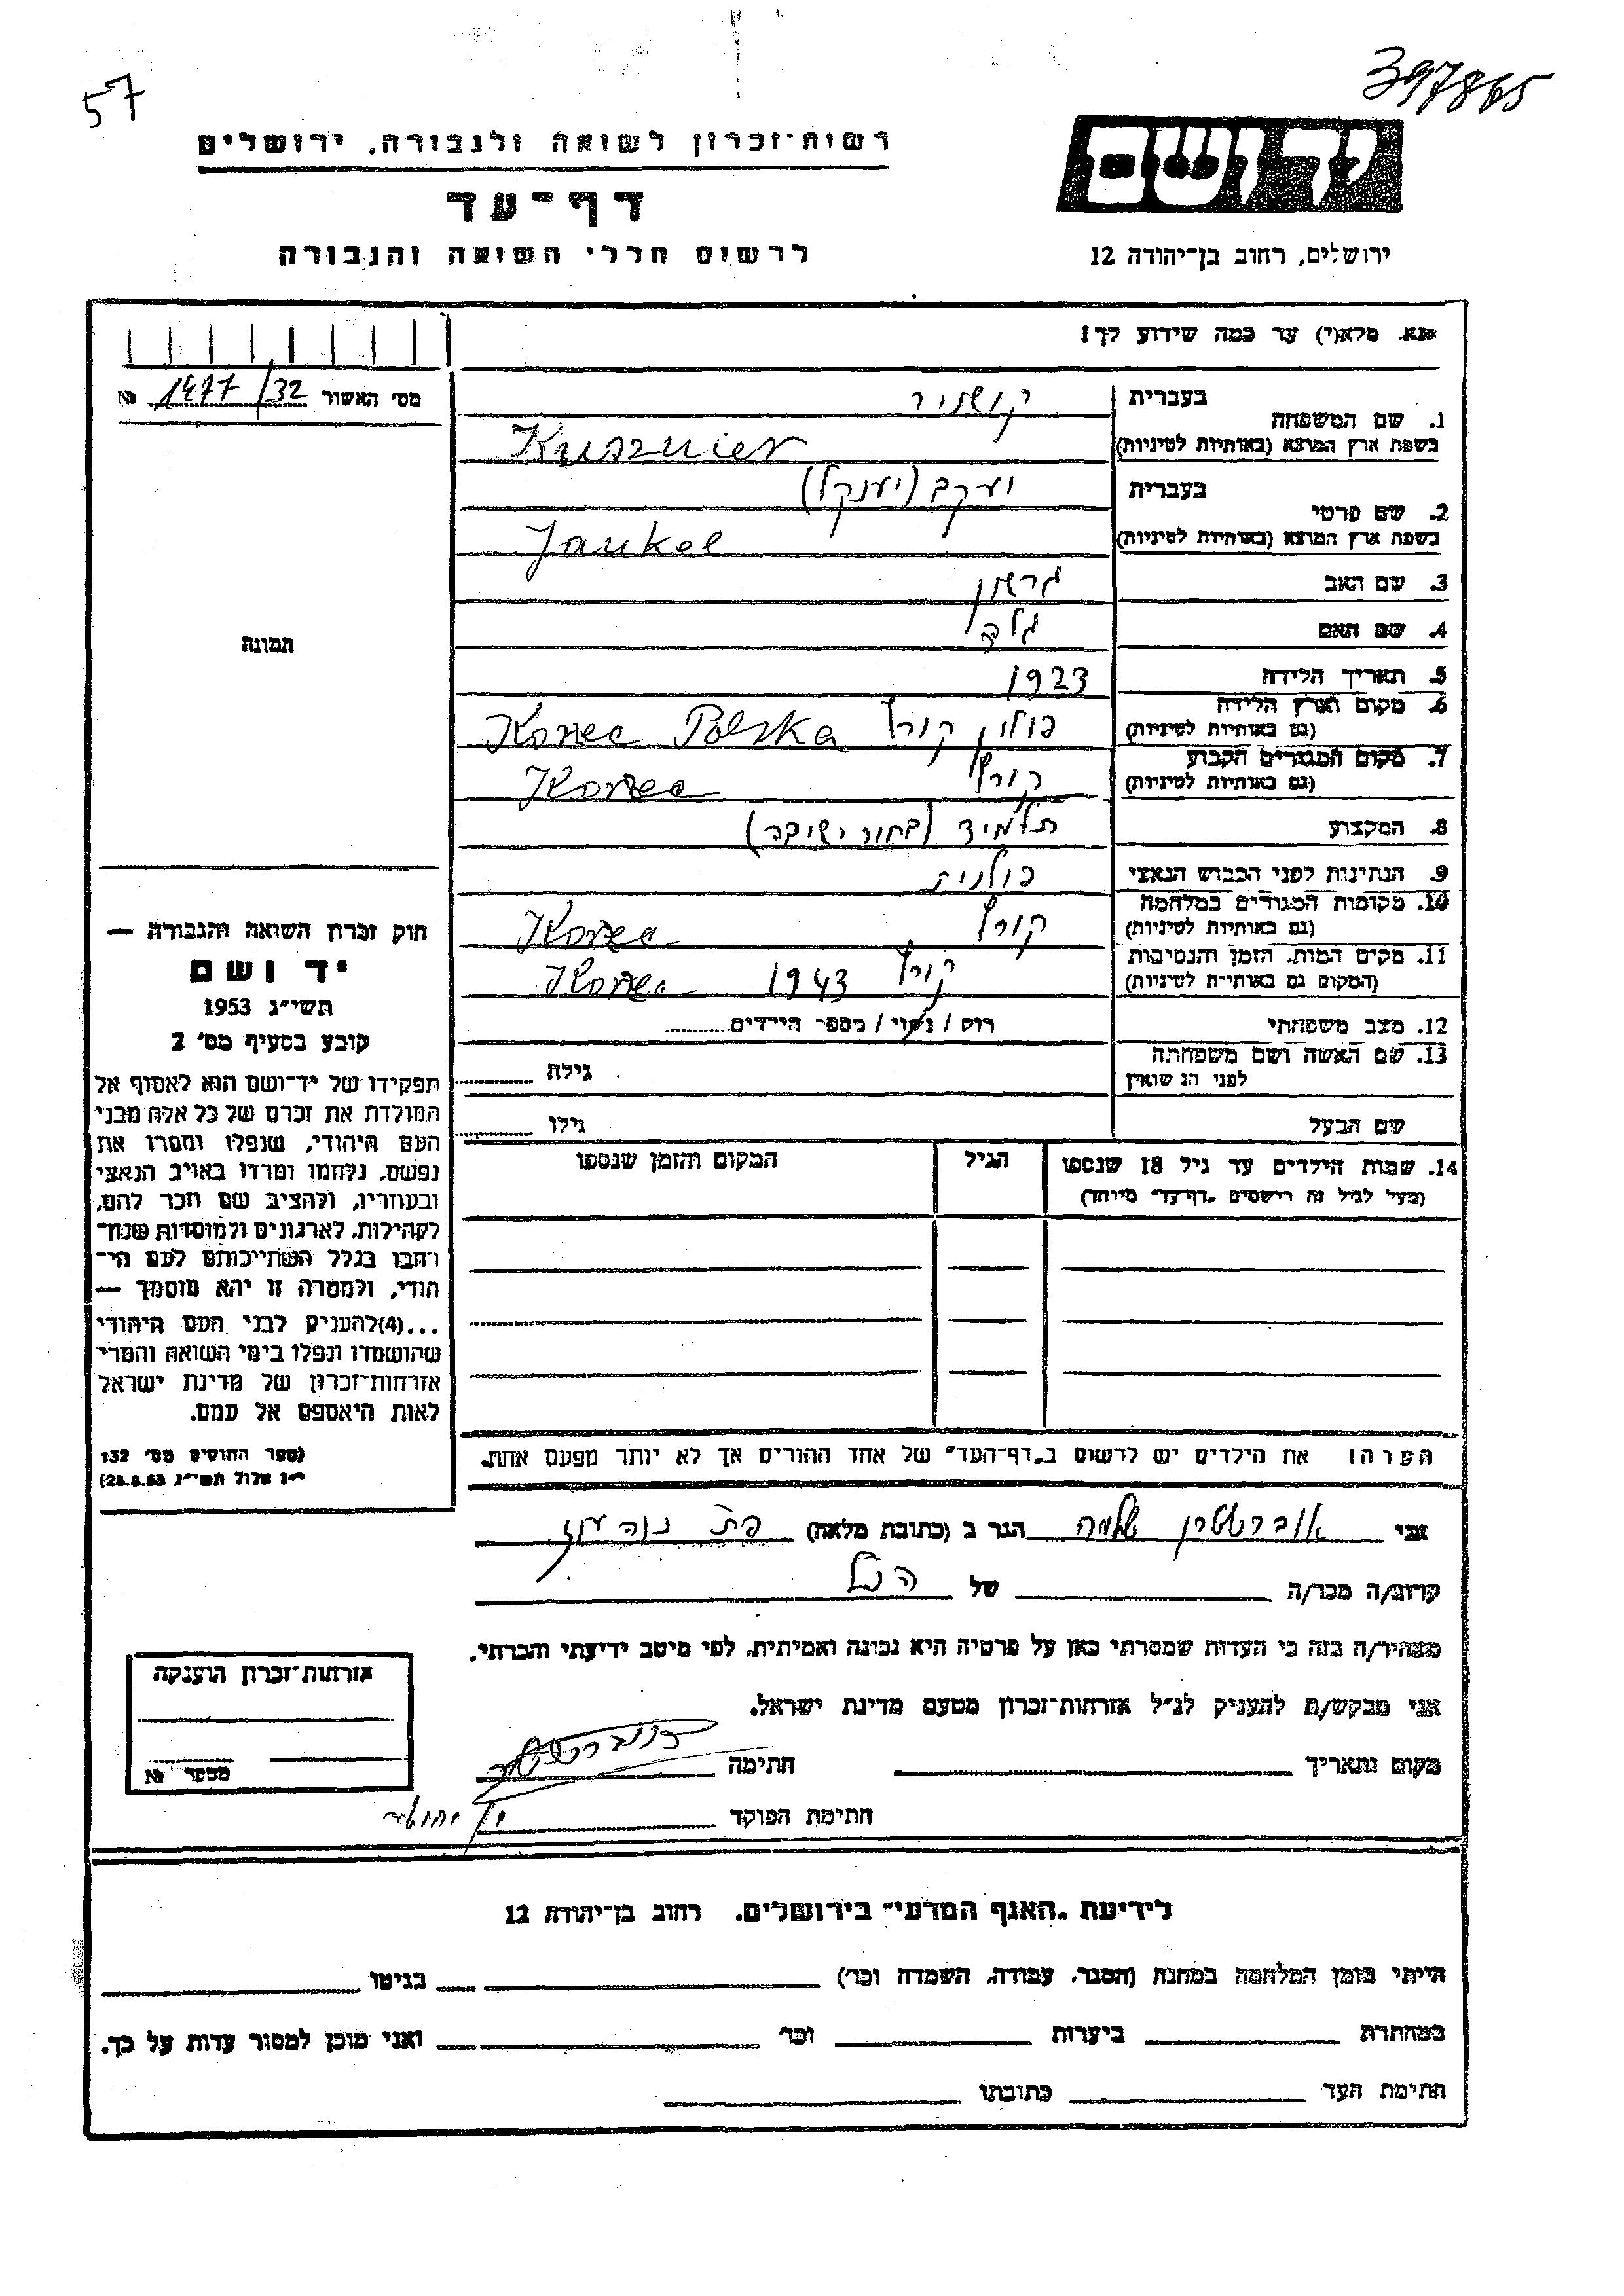 57
397865
רשות־זכרון לשואה ולגבורה, ירושלים
יד ושם
דף־עד
לרשום חללי השואה והגבורה
ירושלים, רחוב בן־יהודה 12
נא. מלא(י) עד כמה שידוע לך!
מס׳ האשור 1477/32 №
1. שם המשפחה
בעברית קושניר
בשפת ארץ המוצא (באותיות לטיניות) Kusznier
2. שם פרטי
בעברית יעקב (יענקל)
בשפת ארץ המוצא (באותיות לטיניות) Jankel
3. שם האב גרשון
4. שם האם
5. תאריך הלידה 1923
6. מקום וארץ הלידה
(גם באותיות לטיניות) פולין קורץ Korzec Polska
7. מקום המגורים הקבוע
(גם באותיות לטיניות) קורץ Korzec
8. המקצוע תלמיד (בחור ישיבה)
9. הנתינות לפני הכבוש הנאצי פולנית
10. מקומות המגורים במלחמה
(גם באותיות לטיניות) קורץ Korzec
11. מקום המות, הזמן והנסיבות
(המקום גם באותיות לטיניות) קורץ 1943 Korzec
12. מצב משפחתי רוק / נשוי / מספר הילדים
13. שם האשה ושם משפחתה
לפני הנישואין גילה
שם הבעל גילו
14. שמות הילדים עד גיל 18 שנספו
(מעל לגיל זה רושמים „דף־עד״ מיוחד)
הגיל
המקום והזמן שנספו
הערה! את הילדים יש לרשום ב„דף־העד״ של אחד ההורים אך לא יותר מפעם אחת.
תמונה
חוק זכרון השואה והגבורה —
יד ושם
תשי״ג 1953
קובע בסעיף מס׳ 2
תפקידו של יד־ושם הוא לאסוף אל
המולדת את זכרם של כל אלה מבני
העם היהודי, שנפלו ומסרו את
נפשם, נלחמו ומרדו באויב הנאצי
ובעוזריו, ולהציב שם וזכר להם,
לקהילות, לארגונים ולמוסדות שנח־
רבו בגלל השתייכותם לעם הי־
הודי, ולמטרה זו יהא מוסמך —
...(4)להעניק לבני העם היהודי
שהושמדו ונפלו בימי השואה והמרי
אזרחות־זכרון של מדינת ישראל
לאות היאספם אל עמם.
(ספר החוקים מס׳ 132
י״ז אלול תשי״ג 28.8.53)
אני אוברשטרן שלמה הגר ב (כתובת מלאה) פת נוה עוז
קרוב/ה מכר/ה של הנ״ל
מצהיר/ה בזה כי העדות שמסרתי כאן על פרטיה היא נכונה ואמיתית, לפי מיטב ידיעתי והכרתי.
אני מבקש/ת להעניק לנ״ל אזרחות־זכרון מטעם מדינת ישראל.
מקום ותאריך חתימה
חתימת הפוקד
אזרחות־זכרון הוענקה
מספר №
לידיעת „האגף המדעי״ בירושלים, רחוב בן־יהודה 12
הייתי בזמן המלחמה במחנה (הסגר, עבודה, השמדה וכו׳) בגיטו
במחתרת ביערות וכו׳ ואני מוכן למסור עדות על כך.
חתימת העד כתובתו